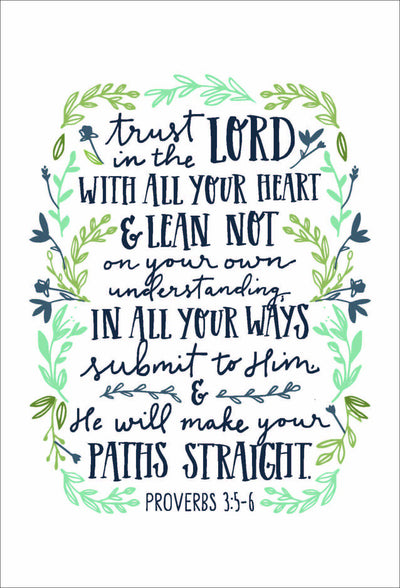 trust in the LORD
WITH ALL YOUR HEART
& LEAN NOT
on your own
understanding,
IN ALL YOUR WAYS
submit to Him
&
He will make your
PATHS STRAIGHT.
PROVERBS 3:5-6